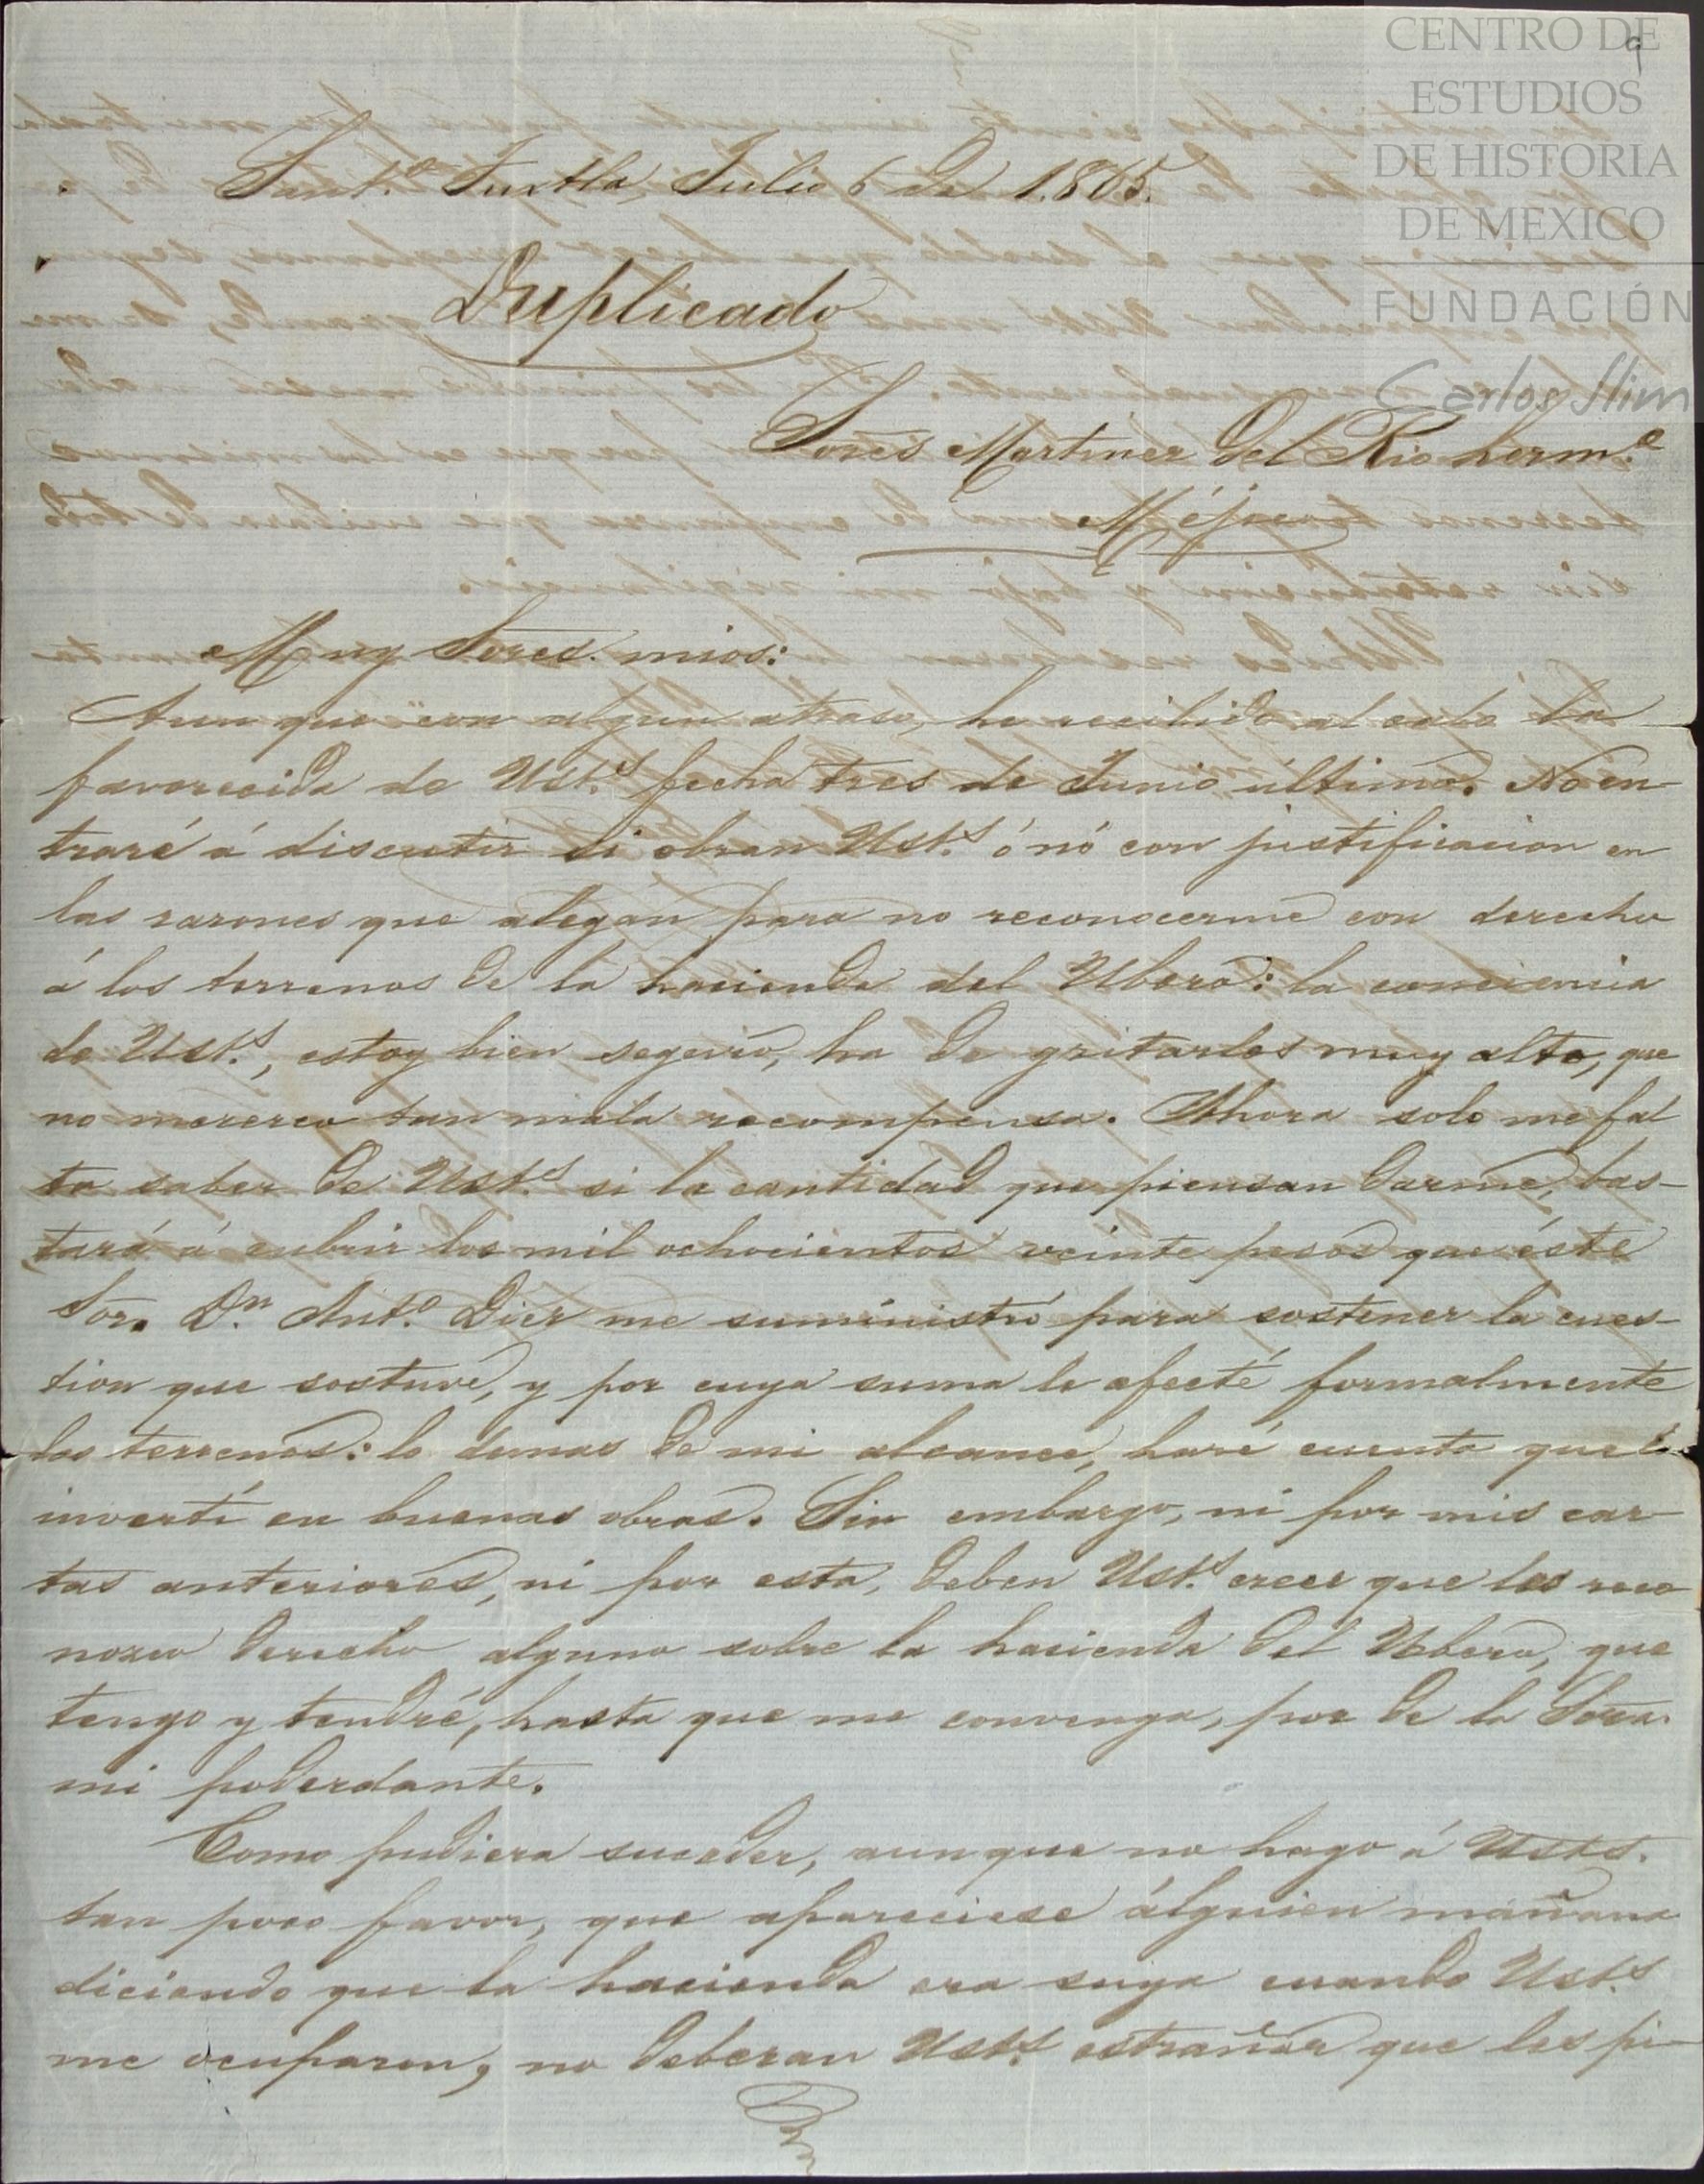 CENTRO DE
ESTUDIOS
DE HISTORIA
DE MEXICO
FUNDACIÓN
Carlos Slim
9
Sant.º Tuxtla, Julio 6 de 1.865.
Duplicado
Sores Martinez del Rio herm.º
Méjico
Muy Sores. mios:
Aun que con algun atraso, he recibido al cabo la
favorecida de Ust.s fecha tres de Junio último. No en-
traré á discutir si obran Ust.s ó nó con justificacion en
las razones que alegan para no reconocerme con derecho
á los terrenos de la hacienda del Ubero: la conciencia
de Ust.s, estoy bien seguro, ha de gritarles muy alto, que
no merezco tan mala recompensa. Ahora solo me fal
ta saber de Ust.s si la cantidad que piensan darme, bas-
tará á cubrir los mil ochocientos veinte pesos que éste
Sor. D.n Ant.º Diez me suministró para sostener la cues-
tion que sostuve, y por cuya suma le afecté formalmente
los terrenos: lo demas de mi alcance, haré cuenta que lo
invertí en buenas obras. Sin embargo, ni por mis car-
tas anteriores, ni por esta, deben Ust.s creer que les reco
nozco derecho alguno sobre la hacienda del Ubero, que
tengo y tendré, hasta que me convenga, por de la Sora.
mi poderdante.
Como pudiera suceder, aunque no hago á Usts.
tan poco favor, que apareciese álguien mañana
diciendo que la hacienda era suya cuando Ust.s
me ocuparon, no deberan Ust.s estrañar que les pi-